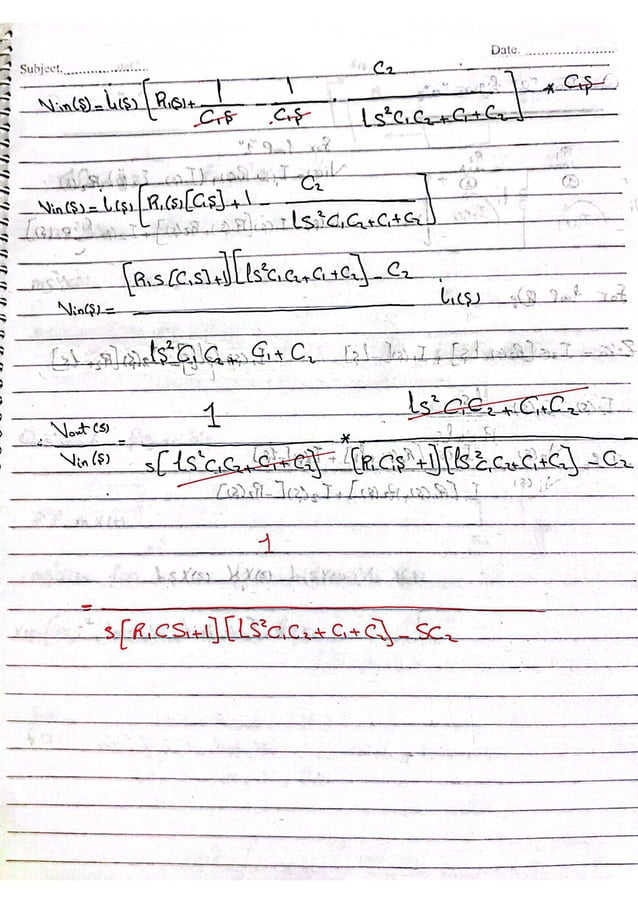 Date. ........................
Subject. ........................
Vin(s) = i₁(s) [R₁(s) + 1/C₁s - 1/C₁s · C₂/(ls²C₁C₂ + C₁ + C₂)] * C₁s
Vin(s) = i₁(s) [R₁(s)[C₁s] + 1 - C₂/(ls²C₁C₂ + C₁ + C₂)]
Vin(s) = ([R₁s(C₁s) + 1][ls²C₁C₂ + C₁ + C₂] - C₂)/(ls²C₁C₂ + C₁ + C₂) i₁(s)
∴ Vout(s)/Vin(s) = 1/(s[ls²C₁C₂ + C₁ + C₂]) * (ls²C₁C₂ + C₁ + C₂)/([R₁C₁s + 1][ls²C₁C₂ + C₁ + C₂] - C₂)
= 1/(s[R₁CS₁ + 1][LS²C₁C₂ + C₁ + C₂] - SC₂)